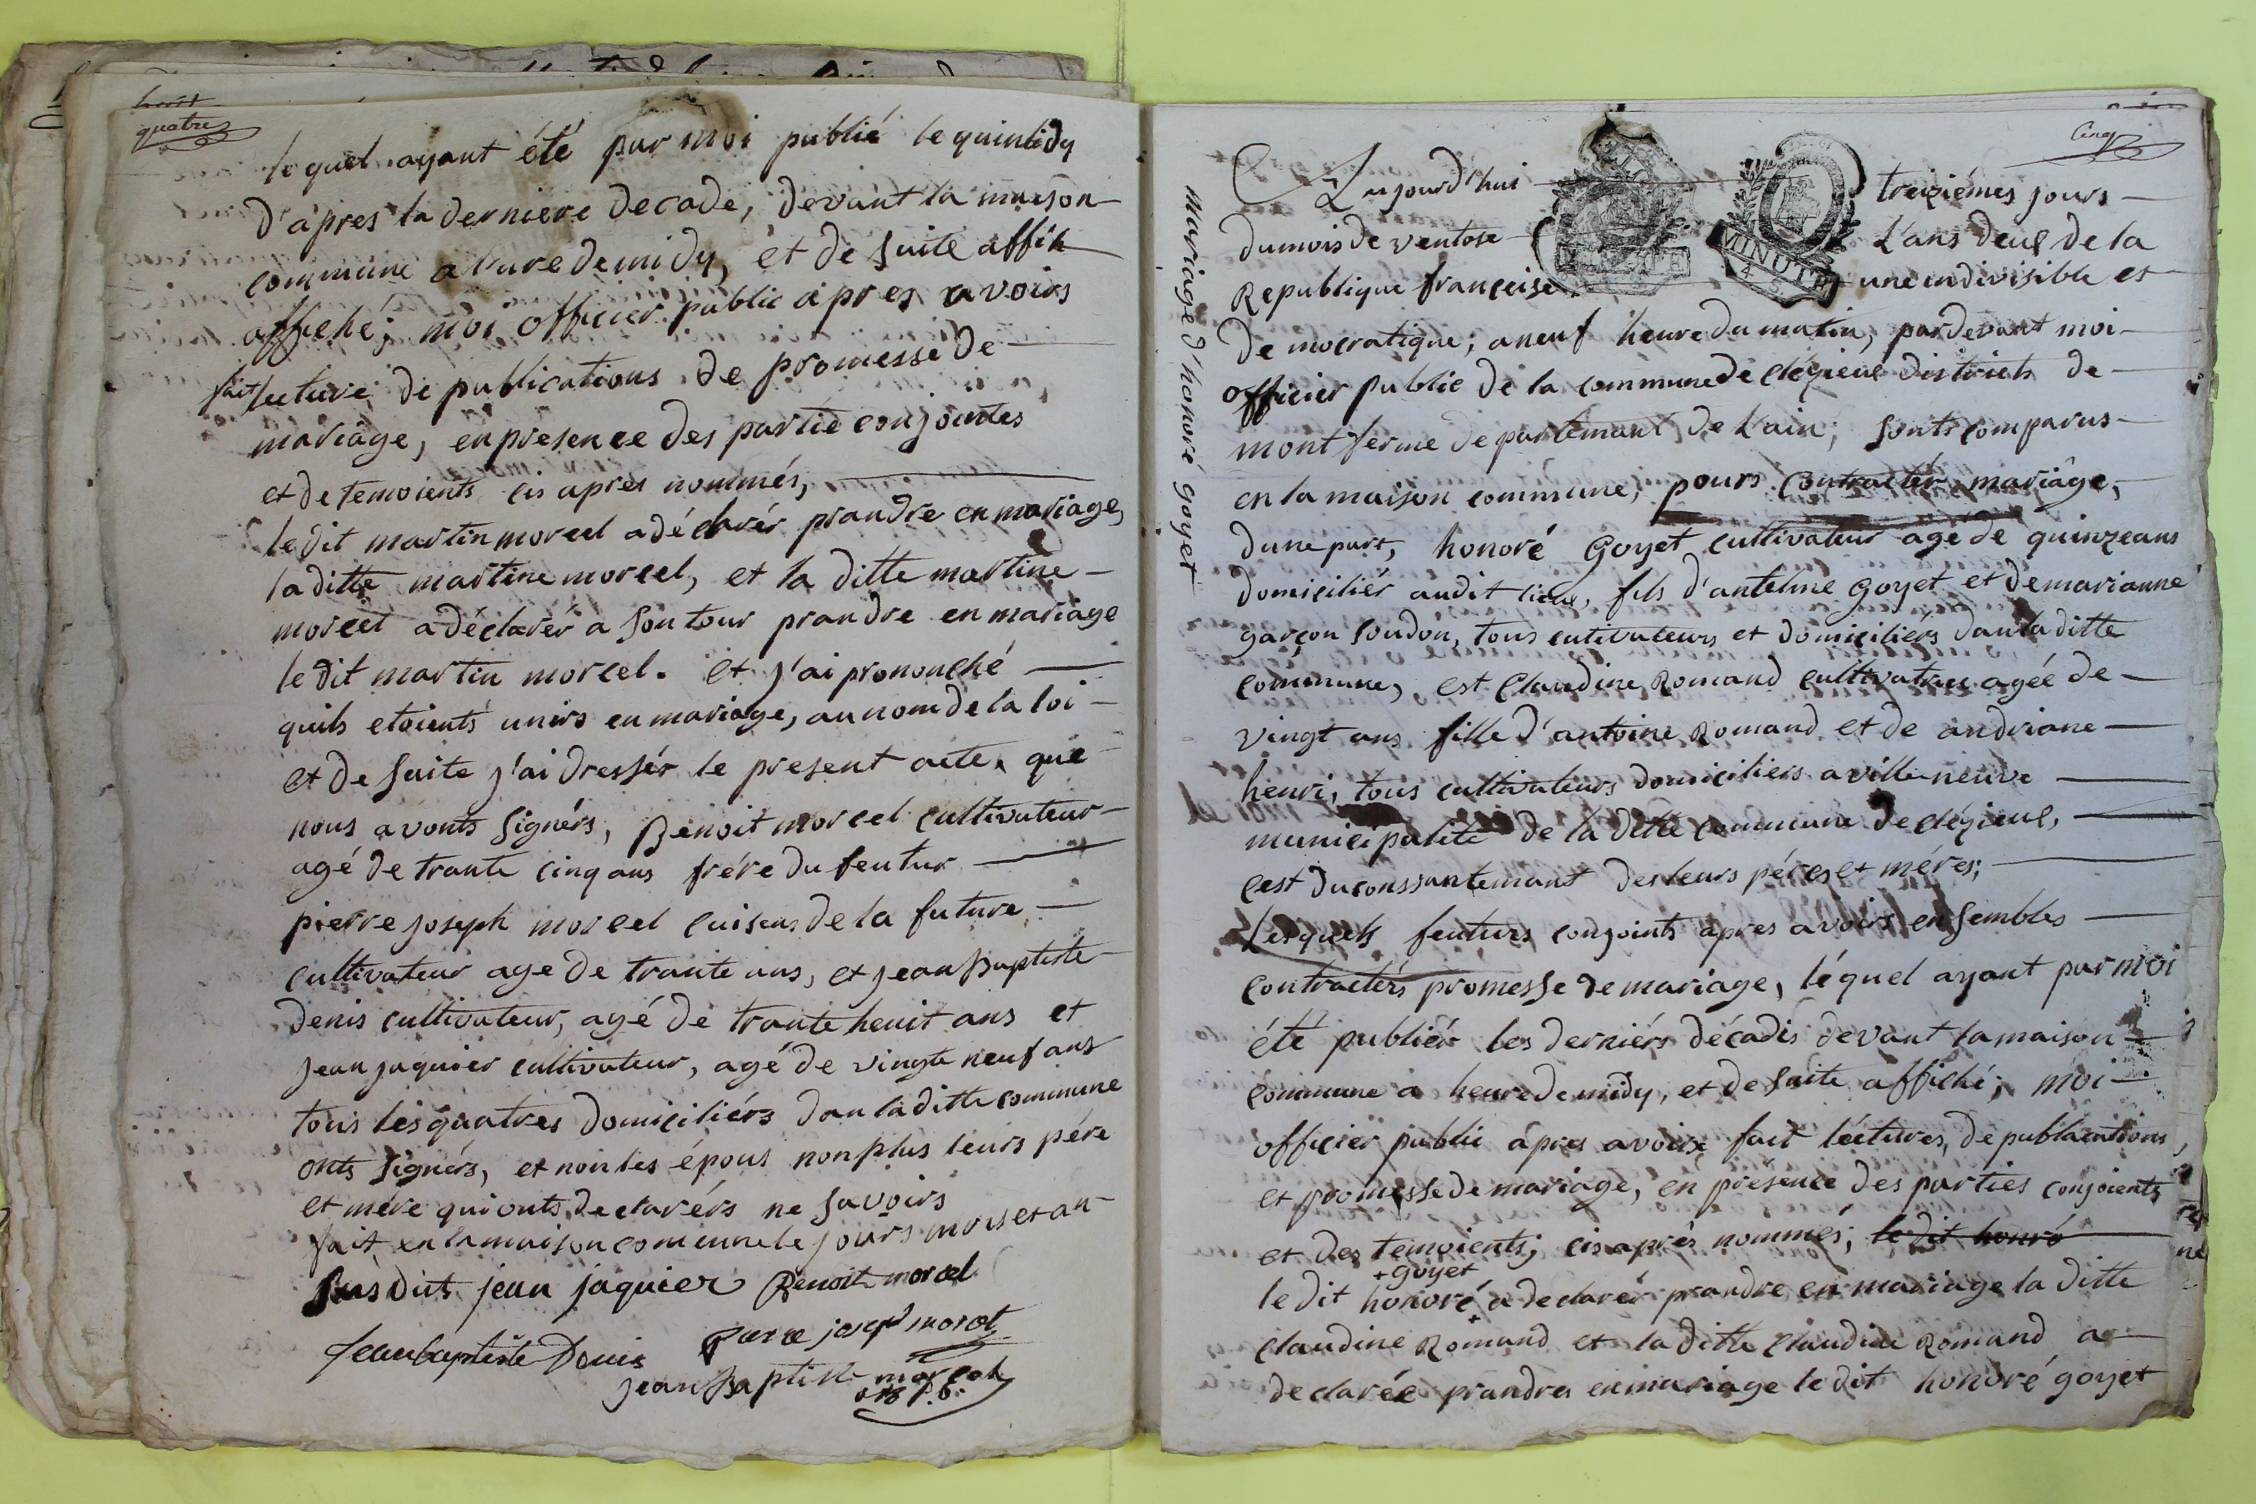 quatre
le quel ayant été par moi publié le quintidy
d'apres la derniere decade, devant la maison
commune a l'ure demidy, et de suite affih
affiché; moi officier public apres avoirs
fait lecture de publications de promesse de
mariâge, en presence des partié conjointes
et de temoients cis apres nommés,
le dit martin morcel a déclarér prandre en mariage,
la ditte martine morcel, et la ditte martine
morcel a déclarér a son tour prandre en mariâge
le dit martin morcel. et j'ai prononché
quils etoients unirs en mariage, au nom de la loi
et de suite j'ai dressér le present acte, que
nous avonts signérs, Benoit morcel cultivateur
agé de trante cinq ans frére du feutur
pierre joseph morcel cuiseus de la future
cultivateur age de trante ans, et jean Baptiste
denis cultivateur, agé de trante heuit ans et
jean jaquier cultivateur, agé de vingte neuf ans
tous les quatres domiciliérs dan la ditte commune
onts signérs, et non les épous non plus leurs pére
et mére qui onts declarérs ne savoirs
fait en la maison comunne le jours mois et an
susdits jean jaquier Benoit morcel
Jean baptiste Denis pierre josep morcel
jean Baptiste morcel
mariage d'honoré goyet
Cinq
Aujourd'hui treiziémes jours
du mois de ventose L'ans deux de la
Republique françeise une indivisible et
MINUTE
4 S.
democratique; a neuf heure du matin, pardevant moi
officier public de la commune de clézieux districts de
montferme departemant de l'ain; sonts comparus
en la maison commune, pours contractér mariâge,
dune part, honoré Goyet cultivateur agé de quinze ans
domiciliér audit lieux, fils d'antelme Goyet et de marianne
garçon soudon, tous cutivateurs et domiciliérs dan la ditte
commune, est Claudine Romand cultivatries agéé de
vingt ans fille d'antoine Romand et de andriane
henri, tous cultivateurs domiciliers a villeneuve
municipalité de la ditte commune de clézieux,
cest du conssantemant des leurs péres et méres;
Lesquels feuturs conjoints apres avoirs ensembles
contractérs promesse de mariage, léquel ayant par moi
été publiér les derniérs décadis devant la maison
commune a heure de midy, et de suite affiché; moi
officier public âpres avoirx fait léctures, de publications,
et promesse de mariage, en présence des parties conjoients
et des temoients; cis aprés nommés; le dit honré
+ goyet
le dit honoré a declarér prandre en mariage la ditte
claudine Romand et la ditte Claudine Romand a
declarée prandres en mariage le dit honoré goyet